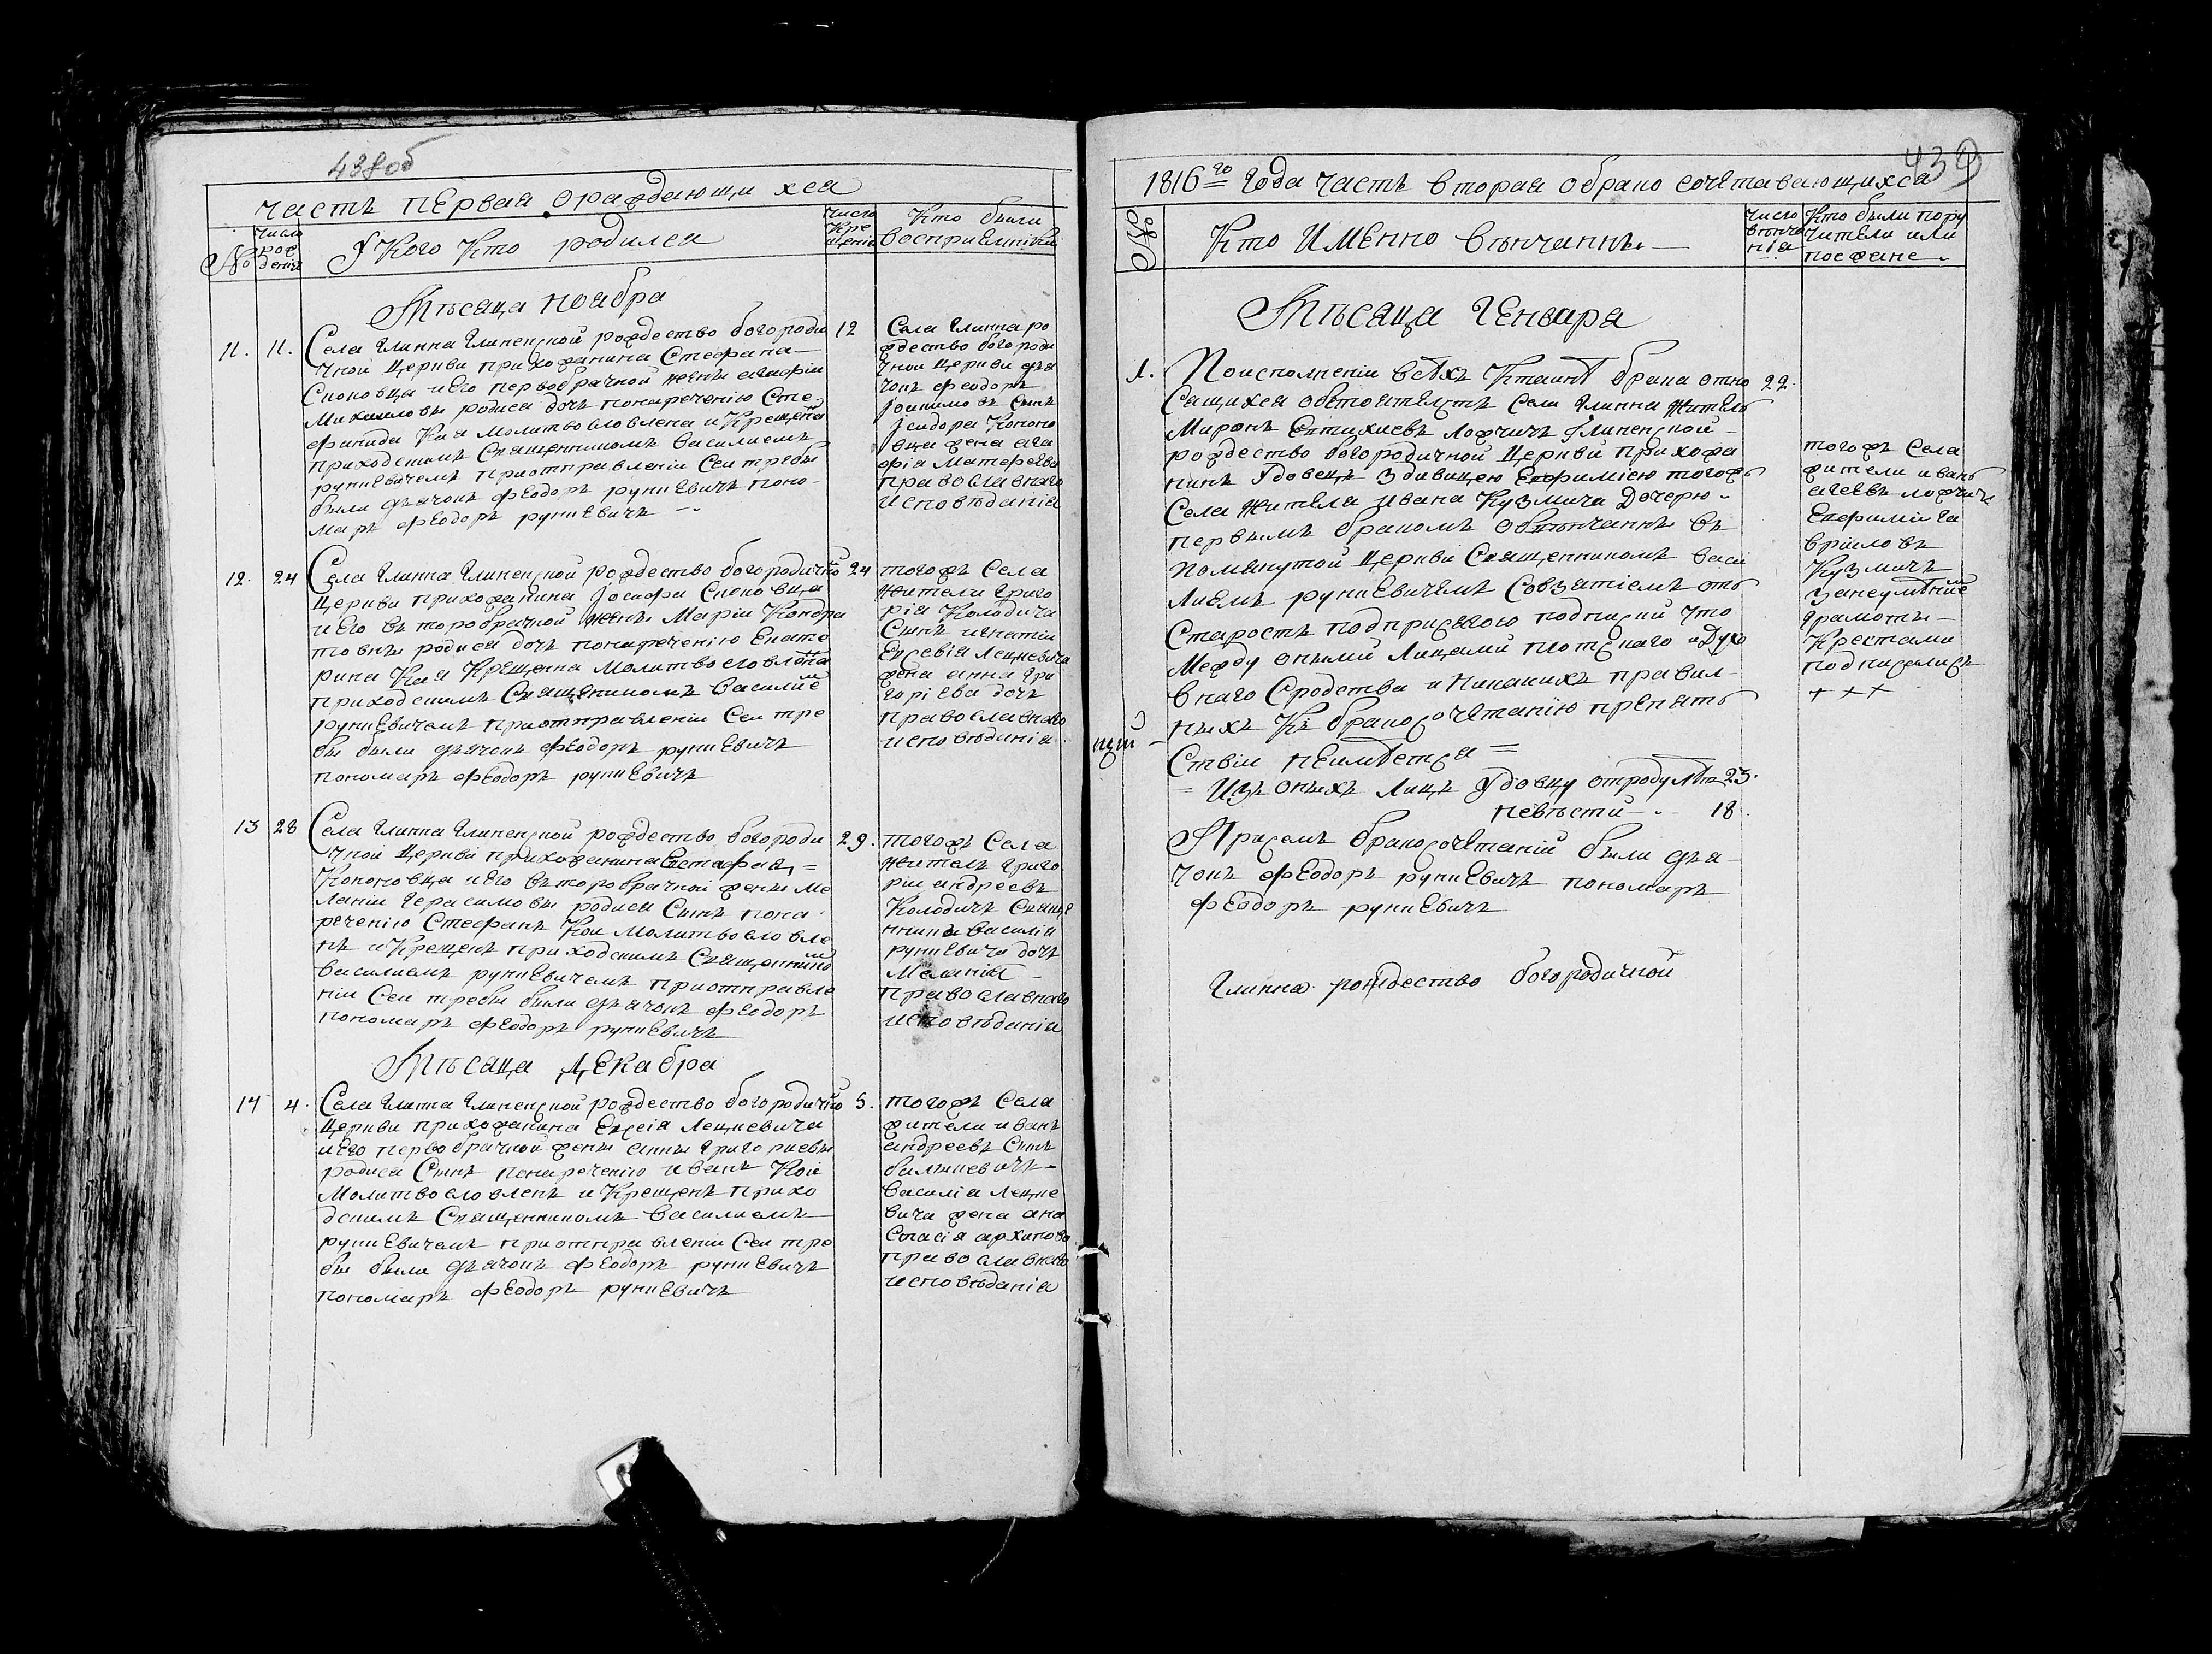 438об
часть первая ораждающи хся
№
число рое дения
У Кого Кто родился
число Кре щенія
Кто были восприемники
Мѣсяца ноября
11. 11.
Села Глинна Глиненской рождество богороди
чной Церкви прихожанина Стефана
и Его первобрачной жены агафіи
Михаиловы родися дочь понаречению Сте
фанида Кая Молитвословлена и Крещена
приходскимъ Священникомъ Василиемъ
руниевичемъ приотправленіи Сеи требы
были дьячокъ феодоръ руниевичъ поно
марь феодоръ руниевичъ
12
Села Глинна ро
ждество богороди
чнои Церкви дья
чокъ феодоръ
Іоакимовъ Сынъ
Ісидора Кононо
вца жена ага
фія Матфеева
православнаго
исповѣданія
12. 24
Села Глинна Глиненской рождество богородично
Церкви прихожанина Іосифа
и Его второбрачной жены Маріи Кондра
товны родися дочь понаречению Екате
рина Кая Крещенна Молитвословлена
приходскимъ Священикомъ Василие
руниевичемъ приотправленіи Сеи тре
бы были дьячокъ феодоръ руниевичъ
пономарь феодоръ руниевичъ
24
тогожъ Села
жители Григо
рія Колодича
Сынъ игнатіи
Евсевія Лецкевича
жена анна Гри
горіева дочь
православнаго
исповѣданія
13 28
Села Глинна Глиненской рождество богороди
чной Церкви прихожанина Евстафія
Кононовца и Его второбрачной жены Ме
ланіи Герасимовы родися Сынъ пона
речению Стефанъ Кои Молитвословле
нъ и Крещенъ приходскимъ Священнико
Василиемъ руниевичемъ приотправле
ніи Сеи требы были дьячокъ феодоръ
пономарь феодоръ руниевичъ
29.
тогожъ Села
житель Григо
ріи андреевъ
Колодичъ Свяще
нника Василія
руниевича дочь
Меланія
православнаго
исповѣданія
Мѣсяца Декабра
14 4.
Села Глинна Глиненской рождество богородично
Церкви прихожанина Евсевія Лецкевича
и Его первобрачной жены анны Григориевы
родися Сынъ понаречению иванъ Кои
Молитвословленъ и Крещенъ прихо
дскимъ Священникомъ Василиемъ
руниевичемъ приотправленіи Сеи тре
бы были дьячокъ феодоръ руниевичъ
пономарь феодоръ руниевичъ
5.
тогожъ Села
жители иванъ
андреевъ Сынъ
Василія Лецке
вича жена ана
стасія архипова
православнаго
исповѣданія
439
1816го года часть вторая обрако сочетавающихся
№
Кто Именно вѣнчанны
число вѣнча нія
Кто были пору чители или поежане
Мѣсяца Генвара
1.
Поисполненіи всѣхъ Ктаинѣ брака отно
Сящихся обстоятелствъ Села Глинна житель
Миронъ Евтихиевъ Ложчичъ Глиненской
рождество богородичной Церкви прихожа
нинъ Удовецъ Здивицею Евфиміею тогожъ
Села жителя Ивана Кузмича Дочерю
первымъ бракомъ Обвѣнчанны въ
помянутой Церкви Священникомъ Васи
лиемъ руниевичемъ Совзятіемъ отъ
Старостъ подприсягою подписки что
Между оными Лицами плотскаго и Духо
внаго Сродства и Никакихъ правил
ныхъ Къ бракосочетанію препятъ
Ствіи неимѣется =
Изъ оныхъ Лицъ Удовцу отроду лѣт 23.
невѣсти 18.
Присемъ бракосочетаніи были дья
чокъ феодоръ руниевичъ пономарь
феодоръ руниевичъ
22.
тогожъ Села
жители иванъ
агеевъ ложчичъ
Евфиміи Га
вриловъ
Кузмичъ
занеумѣние
Грамоты
Крестами
подписались
+ + +
Глинна рождество богородичной